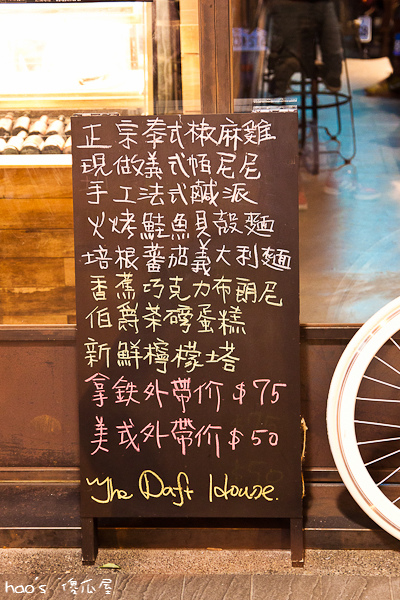 正宗泰式椒麻雞
現做義式帕尼尼
手工法式鹹派
火烤鮭魚貝殼麵
培根蕃茄義大利麵
香蕉巧克力布朗尼
伯爵茶磅蛋糕
新鮮檸檬塔
拿鐵外帶价$75
美式外帶价$50
The Daft House.
hao's 傻瓜屋